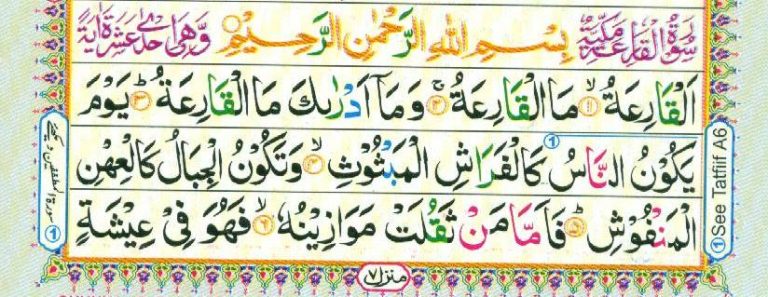 سُوْرَةُ الْقَارِعَةِ مَكِّيَّةٌ بِسْمِ اللهِ الرَّحْمٰنِ الرَّحِيْمِ وَّهِىَ اِحْدٰى عَشْرَةَ اٰيَةً
اَلْقَارِعَةُ ۙ﴿۱﴾ مَا الْقَارِعَةُ ۚ﴿۲﴾ وَمَاۤ اَدْرٰىكَ مَا الْقَارِعَةُ ؕ﴿۳﴾ يَوْمَ
يَكُوْنُ النَّاسُ كَالْفَرَاشِ الْمَبْثُوْثِ ۙ﴿۴﴾ وَتَكُوْنُ الْجِبَالُ كَالْعِهْنِ
الْمَنْفُوْشِ ؕ﴿۵﴾ فَاَمَّا مَنْ ثَقُلَتْ مَوَازِيْنُهٗ ۙ﴿۶﴾ فَهُوَ فِىْ عِيْشَةٍ
منزل ۷
① See Tatfiif A6
① سورۃ المطففین دیکھئے
①